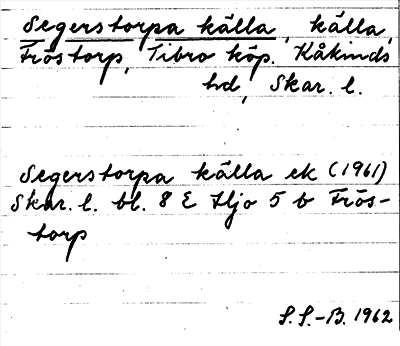 Segerstorpa källa, källa,
Fröstorp, Tibro köp. Kåkinds
hd, Skar. l.
Segerstorpa källa ek (1961)
Skar. l. bl. 8 E Hjo 5 b Frös-
torp
S.S.-B. 1962